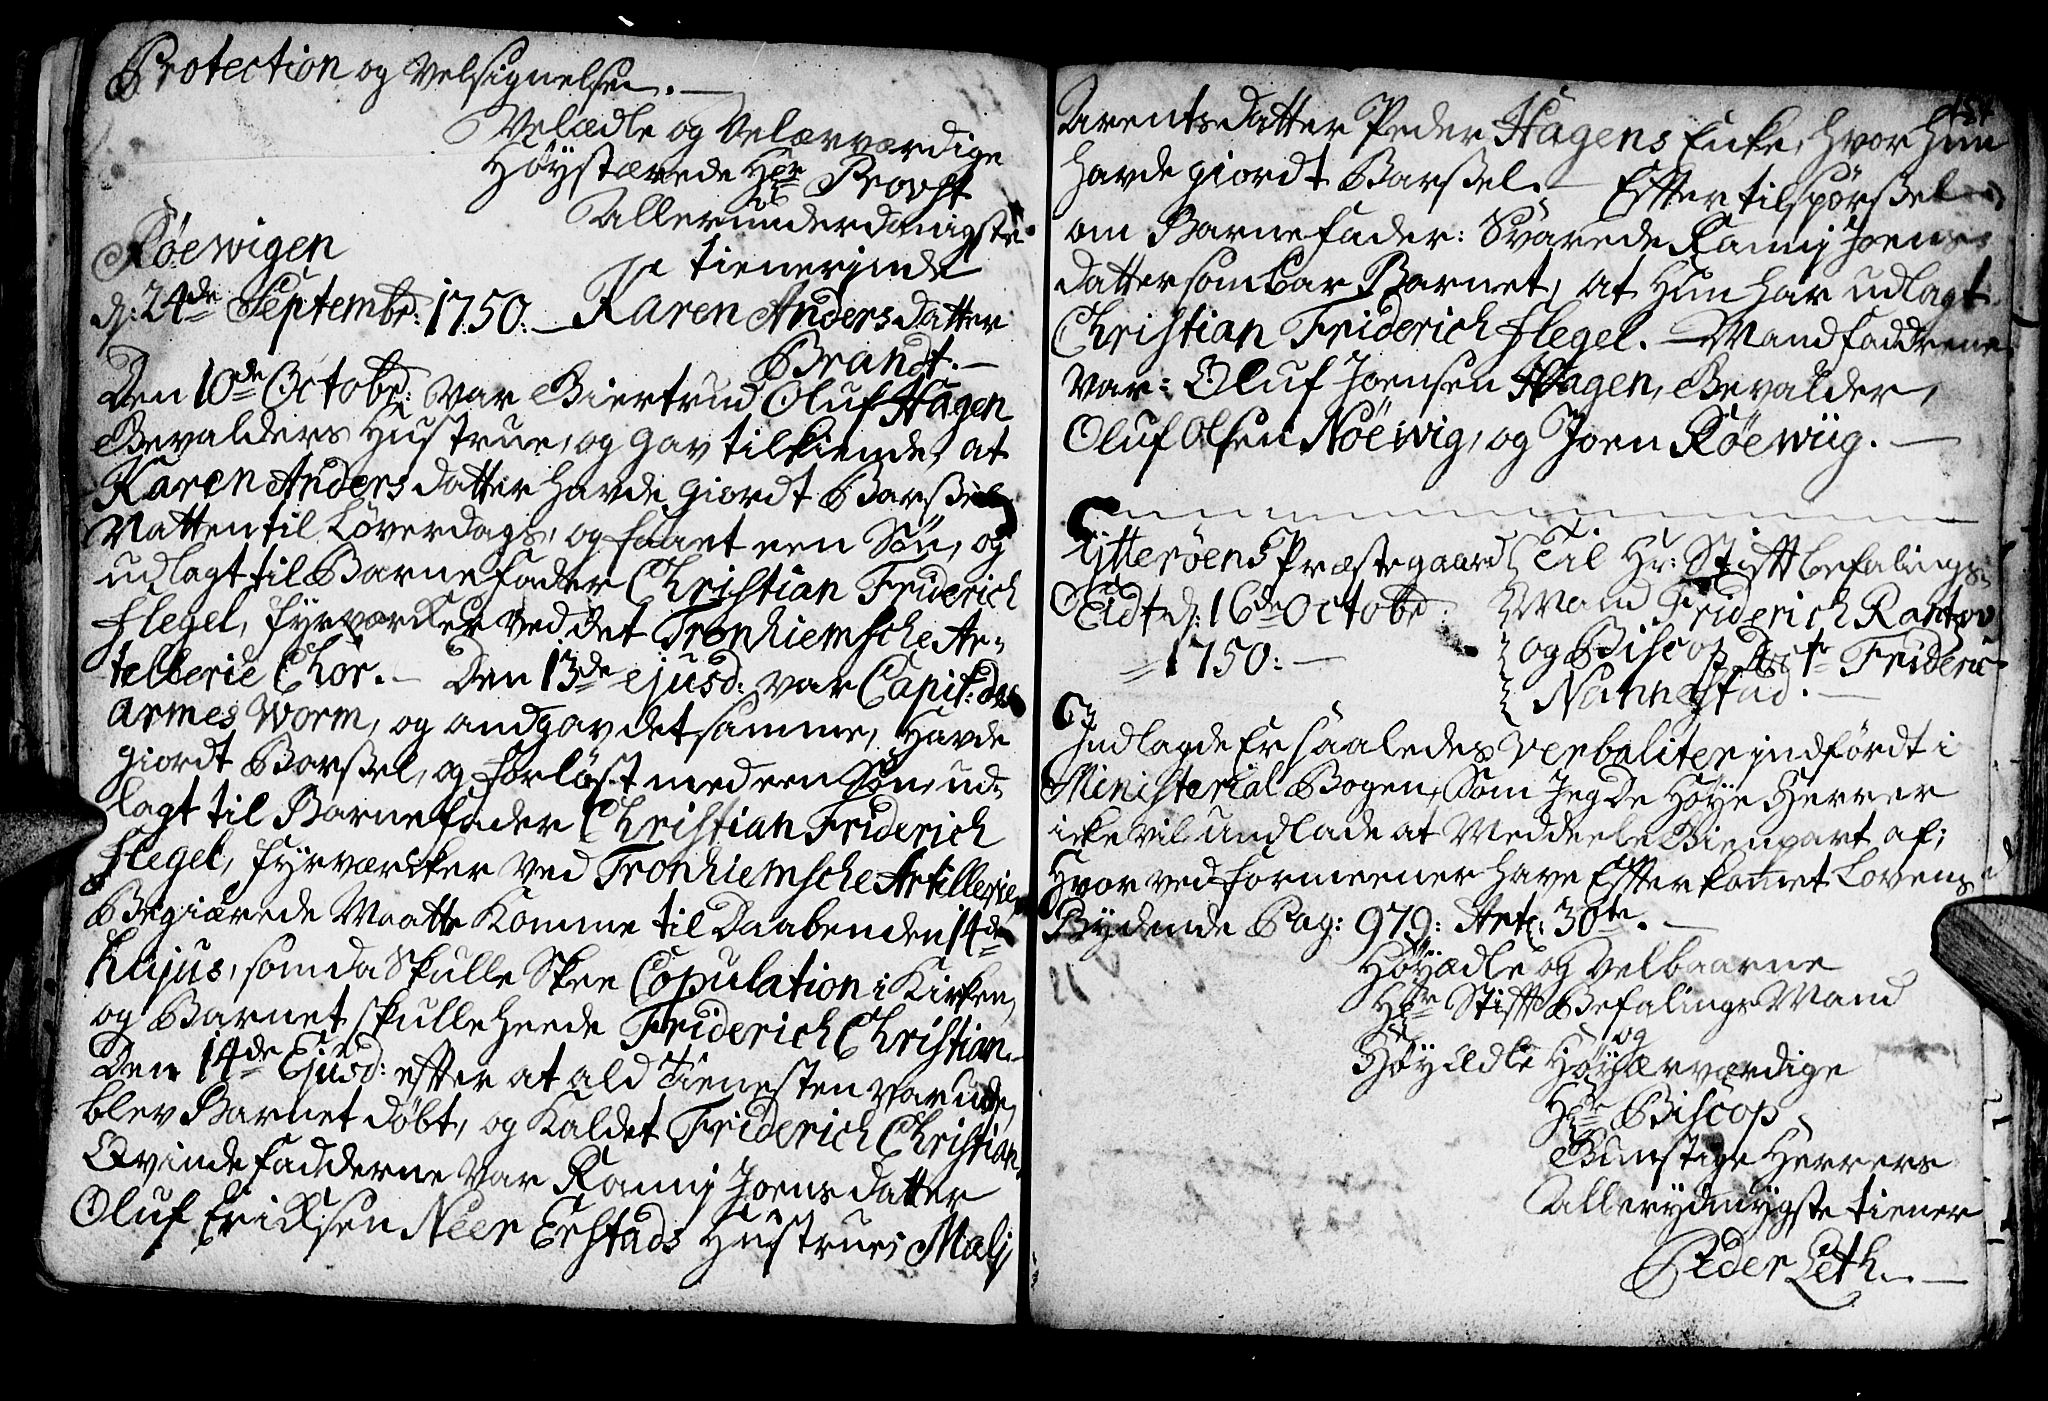 Protection og Velsignelsen. —
Velædle og Velærværdige
Høystærede Hr. Provst
Allerunderdanigste
tienerinde
Røewigen
d: 24de Septembr: 1750: — Karen Andersdatter
Brandt. —
Den 10de Octobr: var Giertrud Oluf Hagen
Gevalders Hustrue, og gav tilkiende, at
Karen Andersdatter havde giordt Barsel
Natten til Løverdags, og faaet een Søn, og
udlagt til Barnefader Christian Friderich
Flegel, Fyrværker ved det Tronhiemsche Ar-
tellerie Chor. — Den 13de ejusd: var Capit: de
Armes Worm, og andgav det samme, Havde
giordt Barsel, og forløst med een Søn, ud-
lagt til Barnefader Christian Friderich
Flegel, Fyrværcker ved Tronhiemsche Artillerie
Begiærede Maatte komme til Daaben den 14de
hujus, som da skulle skee Copulation i Kirken,
og Barnet skulle heede Friderich Christian.
Den 14de Ejusd: efter at ald Tienesten var ude,
blev Barnet døbt, og kaldet Friderich Christian
Qvindefadderne var Rannj Joensdatter
Oluf Eriksen Neer Erstads Hustrue; Malj
Arentsdatter Peder Hagens Encke, hvor hun
havde giordt Barsel. — Efter tilspørsel
om Barnefader: Svarede Rannj Joens
datter som bar Barnet, at Hun har udlagt
Christian Friderich Flegel. — Mandfadderne
var: Oluf Joensen Hagen, Gevalder,
Oluf Olsen Nöewig, og Joen Röewiig. —
Ytterøens Præstegaard
Eidt d: 16de Octobr:
1750: —
Til Hr: Stiftbefalings-
Mand Friderich Rantzov
og Biscop Doctr Frideric
Nannestad. —
Indlagde Er saaledes verbaliter jndførdt i
Ministerial Bogen, Som Jeg De Høye Herrer
icke vil undlade at Meddeele Gienpart af;
Hvorved formeener have Efterkommet Lovens
Bydende Pag: 979: Art: 30te. —
Høyædle og Velbaarne
Hr Stift Befalings Mand
og
Høyædle Høyærværdige
Hr Biscop
Gunstige Herrers
Allerydmygste tiener
Peder Leth. —